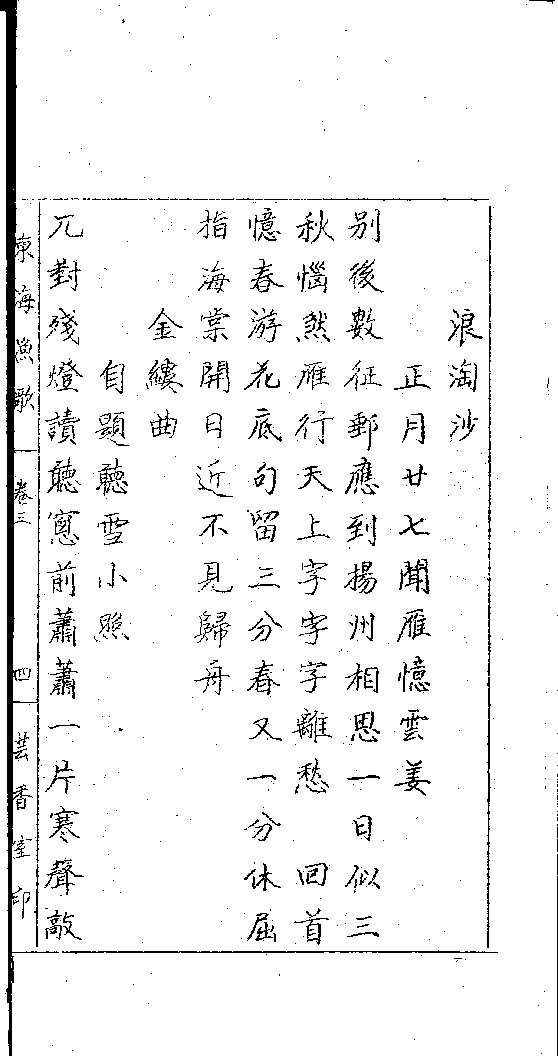 浪淘沙
正月廿七聞雁憶雲姜
別後數征郵應到揚州相思一日似三
秋惱煞雁行天上字字字離愁　回首
憶春游花底句留三分春又一分休屈
指海棠開日近不見歸舟
金縷曲
自題聽雪小照
兀對殘燈讀聽窻前蕭蕭一片寒聲敲
東海漁歌　卷三　四　芸香室印